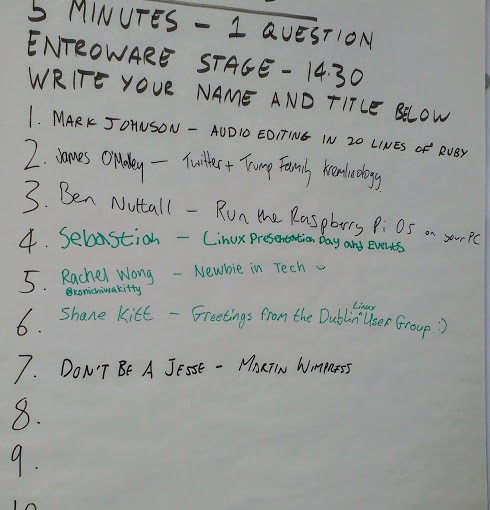 5 MINUTES - 1 QUESTION
ENTROWARE STAGE - 14.30
WRITE YOUR NAME AND TITLE BELOW
1. MARK JOHNSON - AUDIO EDITING IN 20 LINES OF RUBY
2. James O'Malley - Twitter + Trump Family Kremlinology
3. Ben Nuttall - Run the Raspberry Pi OS on your PC
4. Sebastian - Linux Presentation Day and Events
5. Rachel Wong - Newbie in Tech
@konichiwakitty
6. Shane Kitt - Greetings from the Dublin Linux User Group :)
7. DON'T BE A JESSE - MARTIN WIMPRESS
8.
9.
10